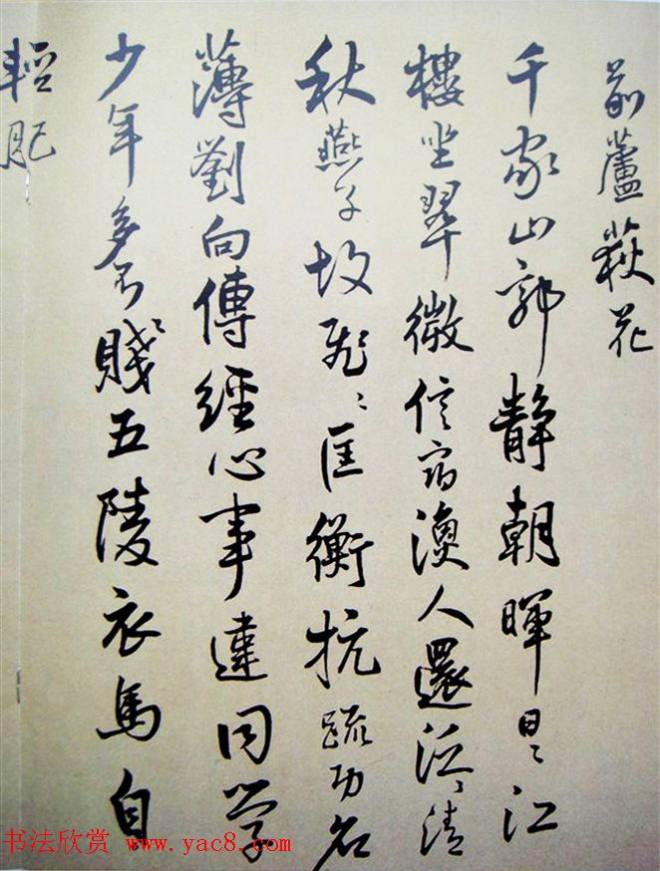 前蘆荻花
千家山郭靜朝暉日〻江
樓坐翠微信宿漁人還泛〻清
秋燕子故飛〻匡衡抗疏功名
薄劉向傳經心事違同學
少年多不賤五陵衣馬自
輕肥
书法欣赏 www.yac8.com